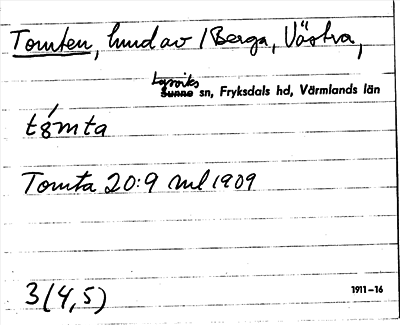 Tomten, hmd av 1 Berga, Västra,
Lysviks
Sunne sn, Fryksdals hd, Värmlands län
Tomta 20:9 ml 1909
3(4,5)
1911-16